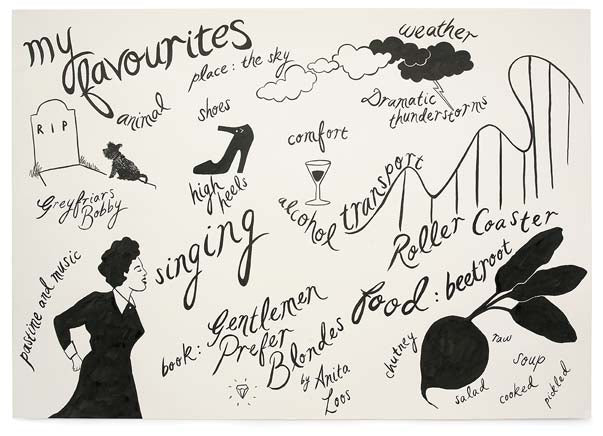 my
favourites
place: the sky
weather
Dramatic
thunderstorms
animal
RIP
Greyfriars
Bobby
shoes
high
heels
comfort
alcohol
transport
Roller Coaster
pastime and music
singing
book: Gentlemen
Prefer
Blondes
by Anita
Loos
food: beetroot
chutney
raw
salad
soup
cooked
pickled